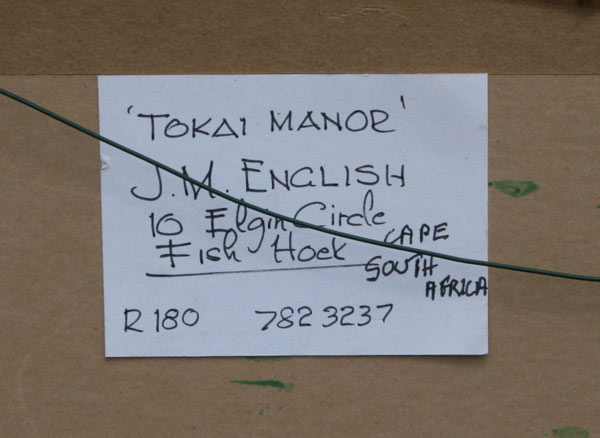 'TOKAI MANOR'
J.M. ENGLISH
10 Elgin Circle
Fish Hoek CAPE
SOUTH
AFRICA
R180 782 3237